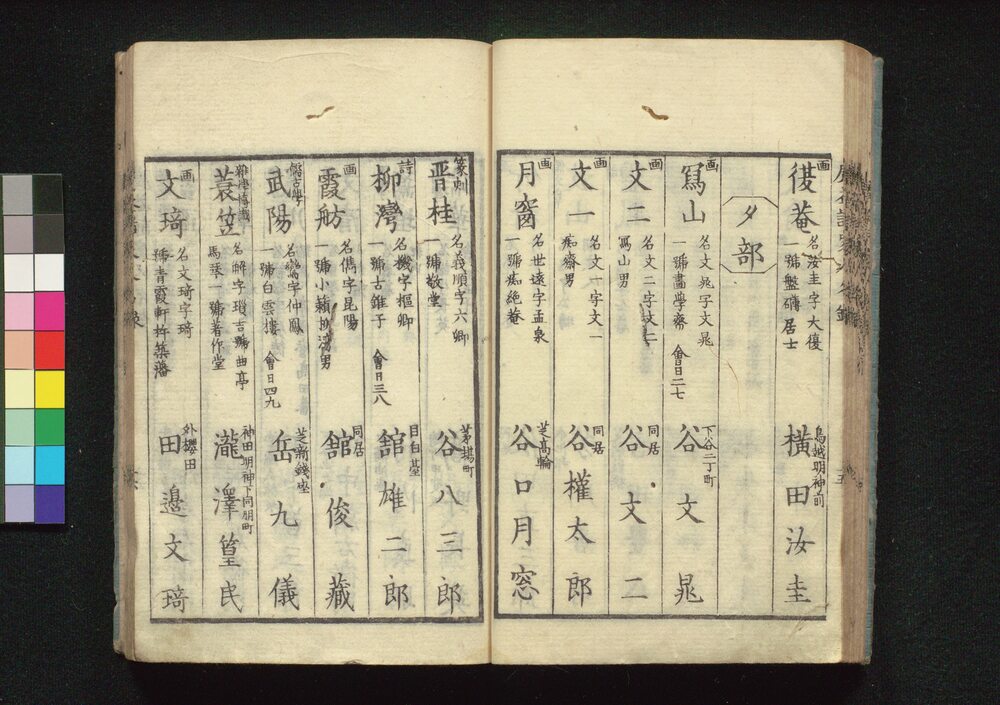 画
名汝圭字大優
一號盤礴居士
鳥越明神前
横田汝圭
タ部
画
寫山
名文晁字文晁
一號畫學齋 會日二七
下谷二丁町
谷文晁
画
文二
名文二字文二
寫山男
同居
谷文二
画
文一
名文一字文一
痴齋男
同居
谷權太郎
画
月窗
名世達字孟泉
一號痴絶菴
芝高輪
谷口月窓
篆刻
晋桂
名義順字六卿
一號敬堂
茅場町
谷八三郎
詩
柳灣
名機字樞卿
一號古錐子 會日三八
目白臺
舘雄二郎
画
霞舫
名儁字昆陽
一號小藾 柳灣男
同居
舘俊藏
儒古學
武陽
字仲鳳
一號白雲樓 會日四九
芝新錢座
岳九儀
雜學博識
蓑笠
名解字瑣吉號曲亭
馬琴一號著作堂
神田明神下同朋町
瀧澤篁民
画
文琦
名文琦字琦
號青霞軒 杵築藩
外櫻田
田邉文琦